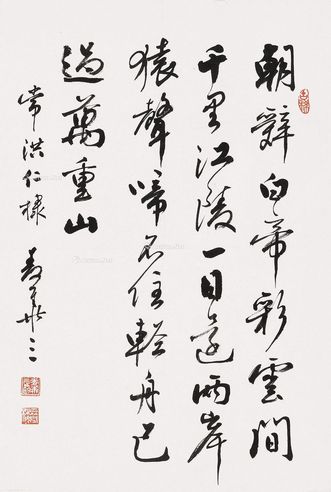 朝辭白帝彩雲間
千里江陵一日還兩岸
猿聲啼不住輕舟已
過萬重山
常洪仁棣